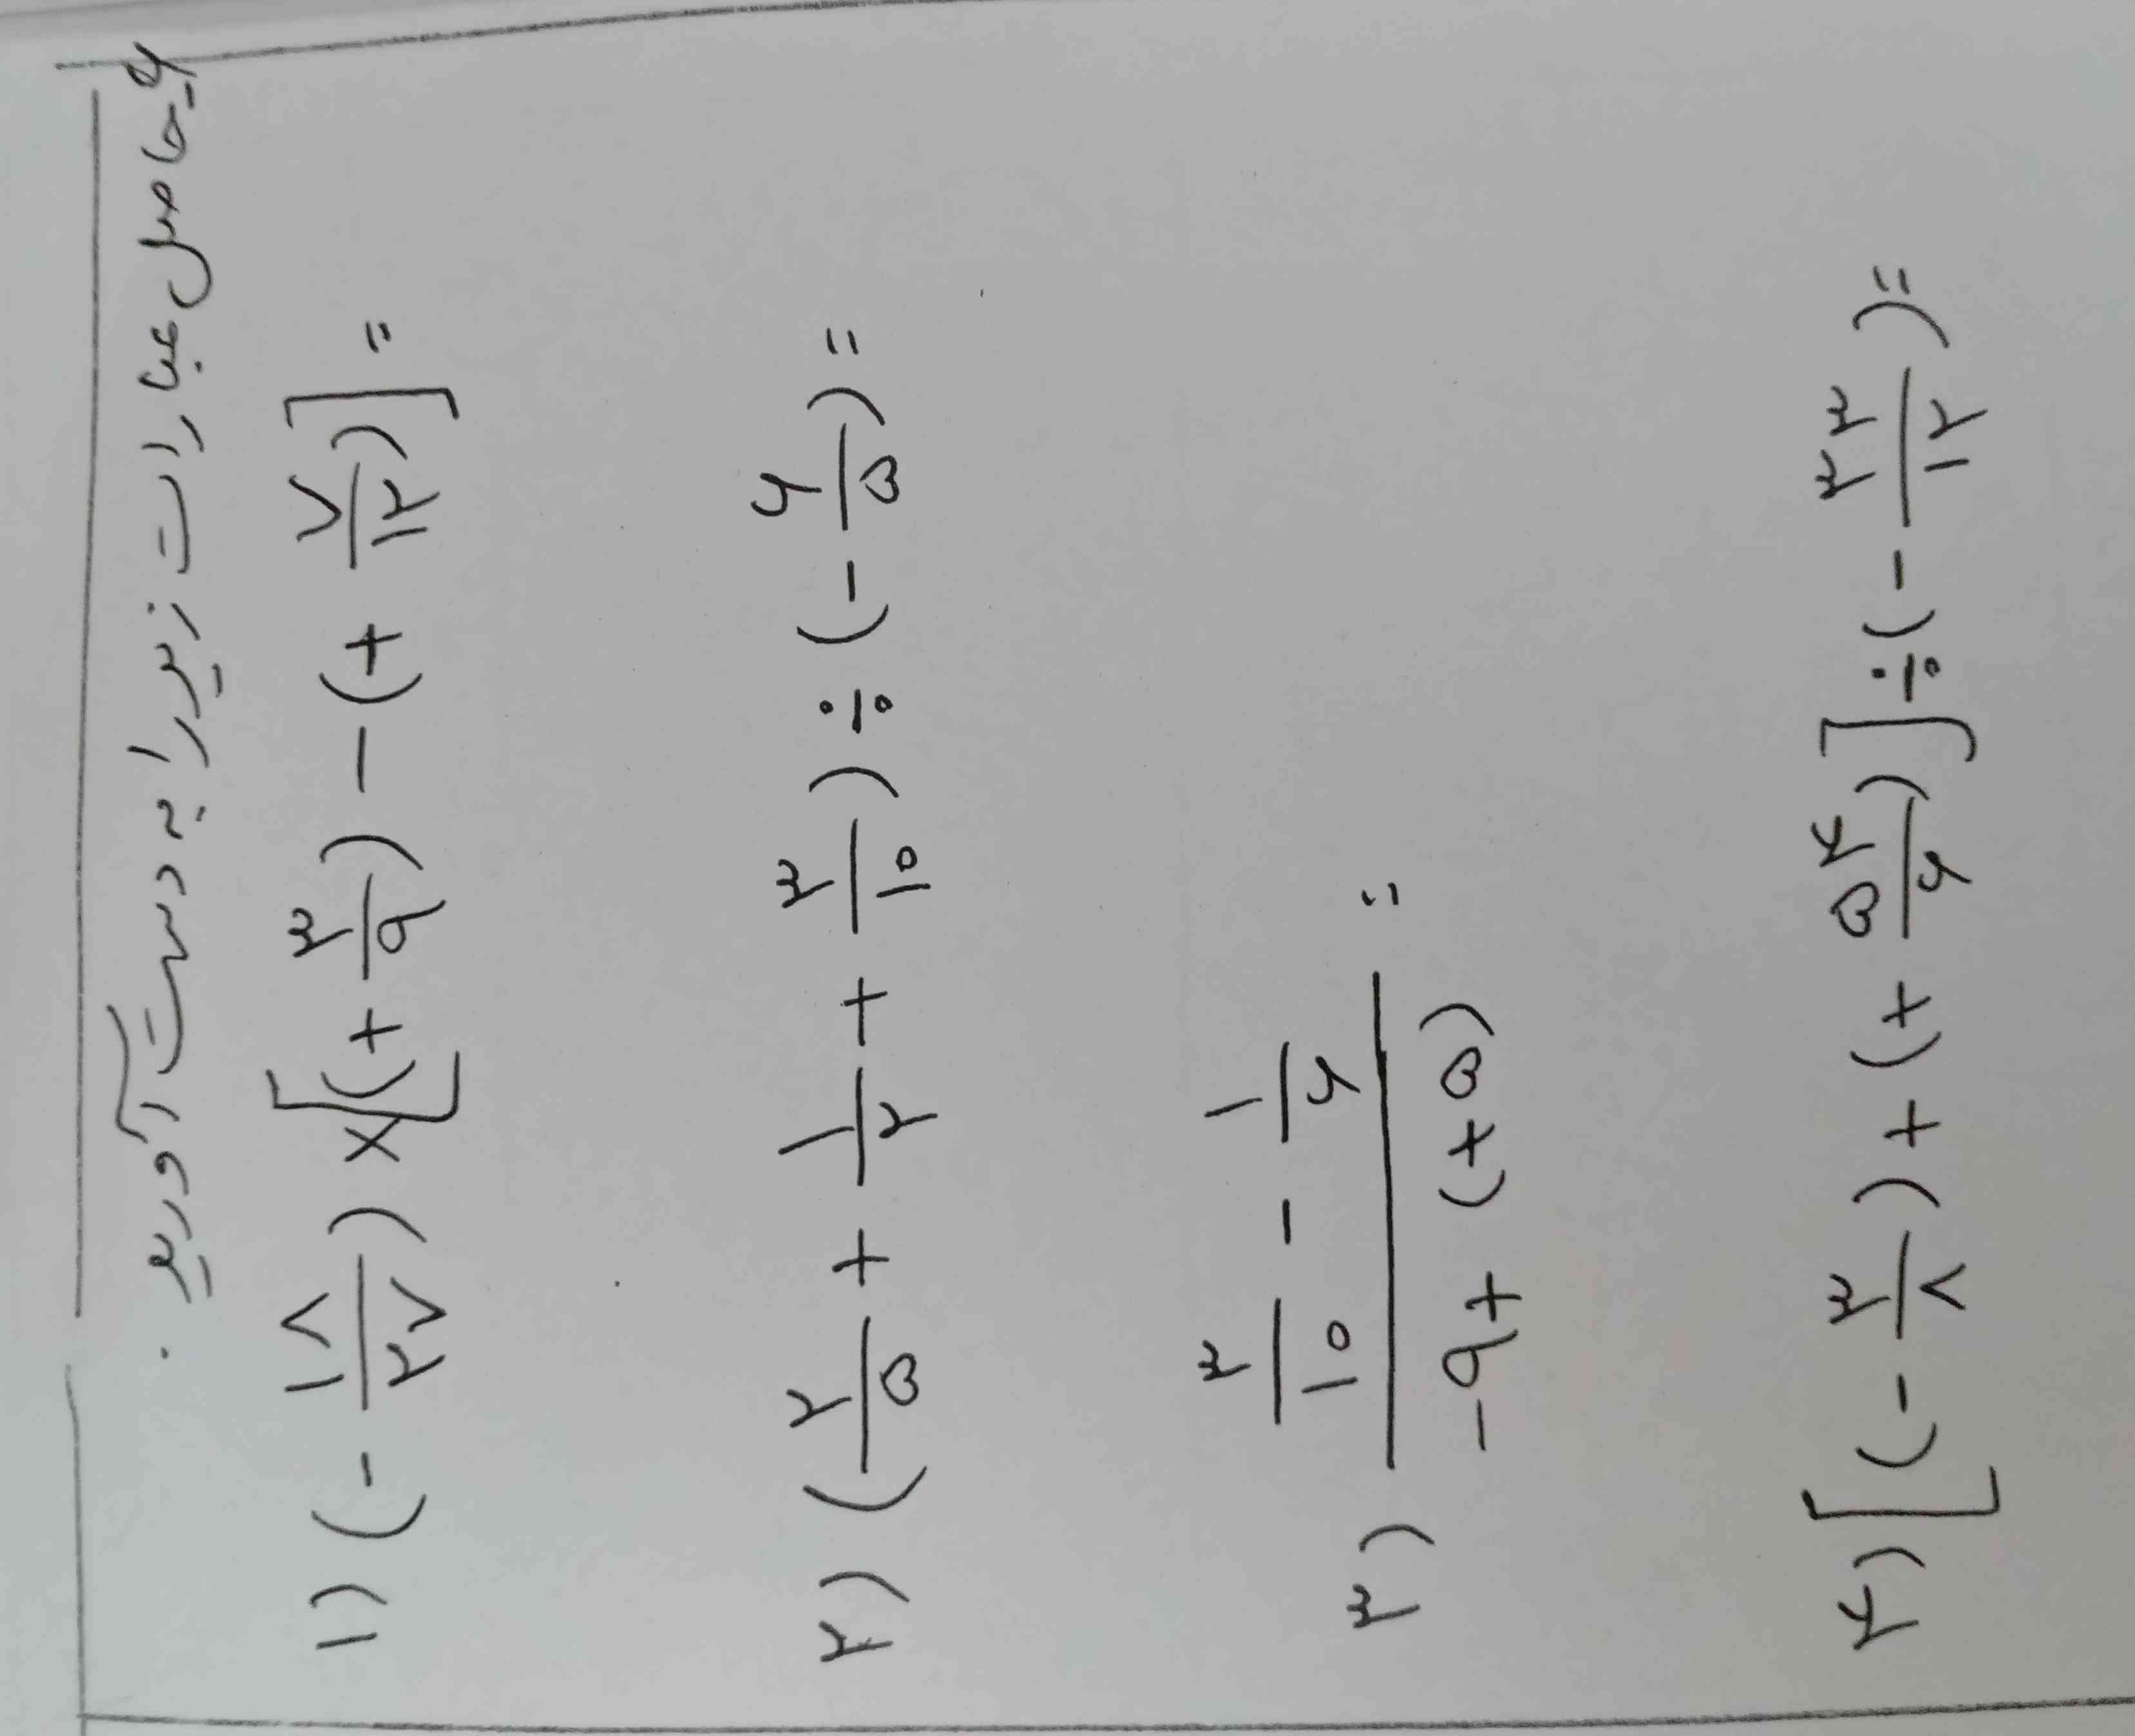 ۶- حاصل عبارات زیر را به دست آورید .
۱) (- ۱۸/۲۷) × [(+ ۳/۹) - (+ ۷/۱۲)] =
۲) (۲/۵ + ۱/۲ + ۳/۱۰) ÷ (- ۶/۵) =
۳) (۳/۱۰ - ۱/۶) / (-۹ + (+۵)) =
۴) [(- ۳/۸) + (+ ۵۴/۶)] ÷ (- ۳۳/۱۲) =